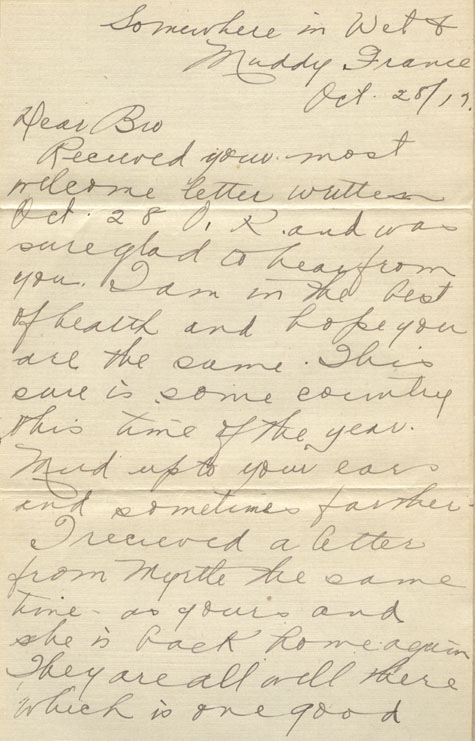 Somewhere in Wet &
Muddy France
Oct. 28/17.
Dear Bro
Recieved your most
welcome letter written
Oct. 28 O.K. and was
sure glad to hear from
you. I am in the best
of health and hope you
are the same. This
sure is some country
this time of the year.
Mud up to your ears
and sometimes farther.
I recieved a letter
from Myrtle the same
time as yours and
she is back home again
They are all well there
which is one good